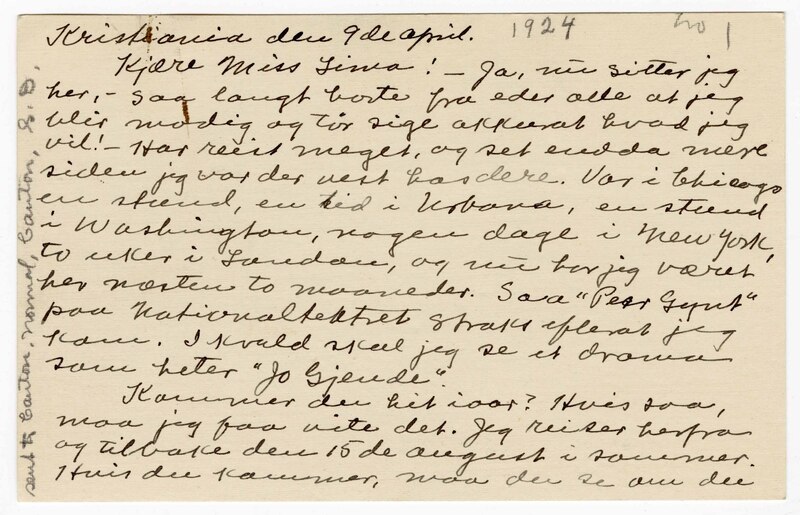 Kristiania den 9de april. 1924 no 1
Kjære Miss Sima! – Ja, nu sitter jeg
her, – saa langt borte fra eder alle at jeg
blir modig og tør sige akkurat hvad jeg
vil! – Har reist meget, og set endda mere
siden jeg var der vest hos dere. Var i Chicago
en stund, en tid i Urbana, en stund
i Washington, nogen dage i New York,
to uker i London, og nu har jeg været
her næsten to maaneder. Saa "Peer Gynt"
paa Nationaltetret straks efterat jeg
kom. I kvæld skal jeg se et drama
som heter "Jo Gjende".
Kommer du hit iaar? Hvis saa,
maa jeg faa vite det. Jeg reiser herfra
og tilbake den 15de august i sommer.
Hvis du kommer, maa du se om du
sent to Canton Normal, Canton, S. D.